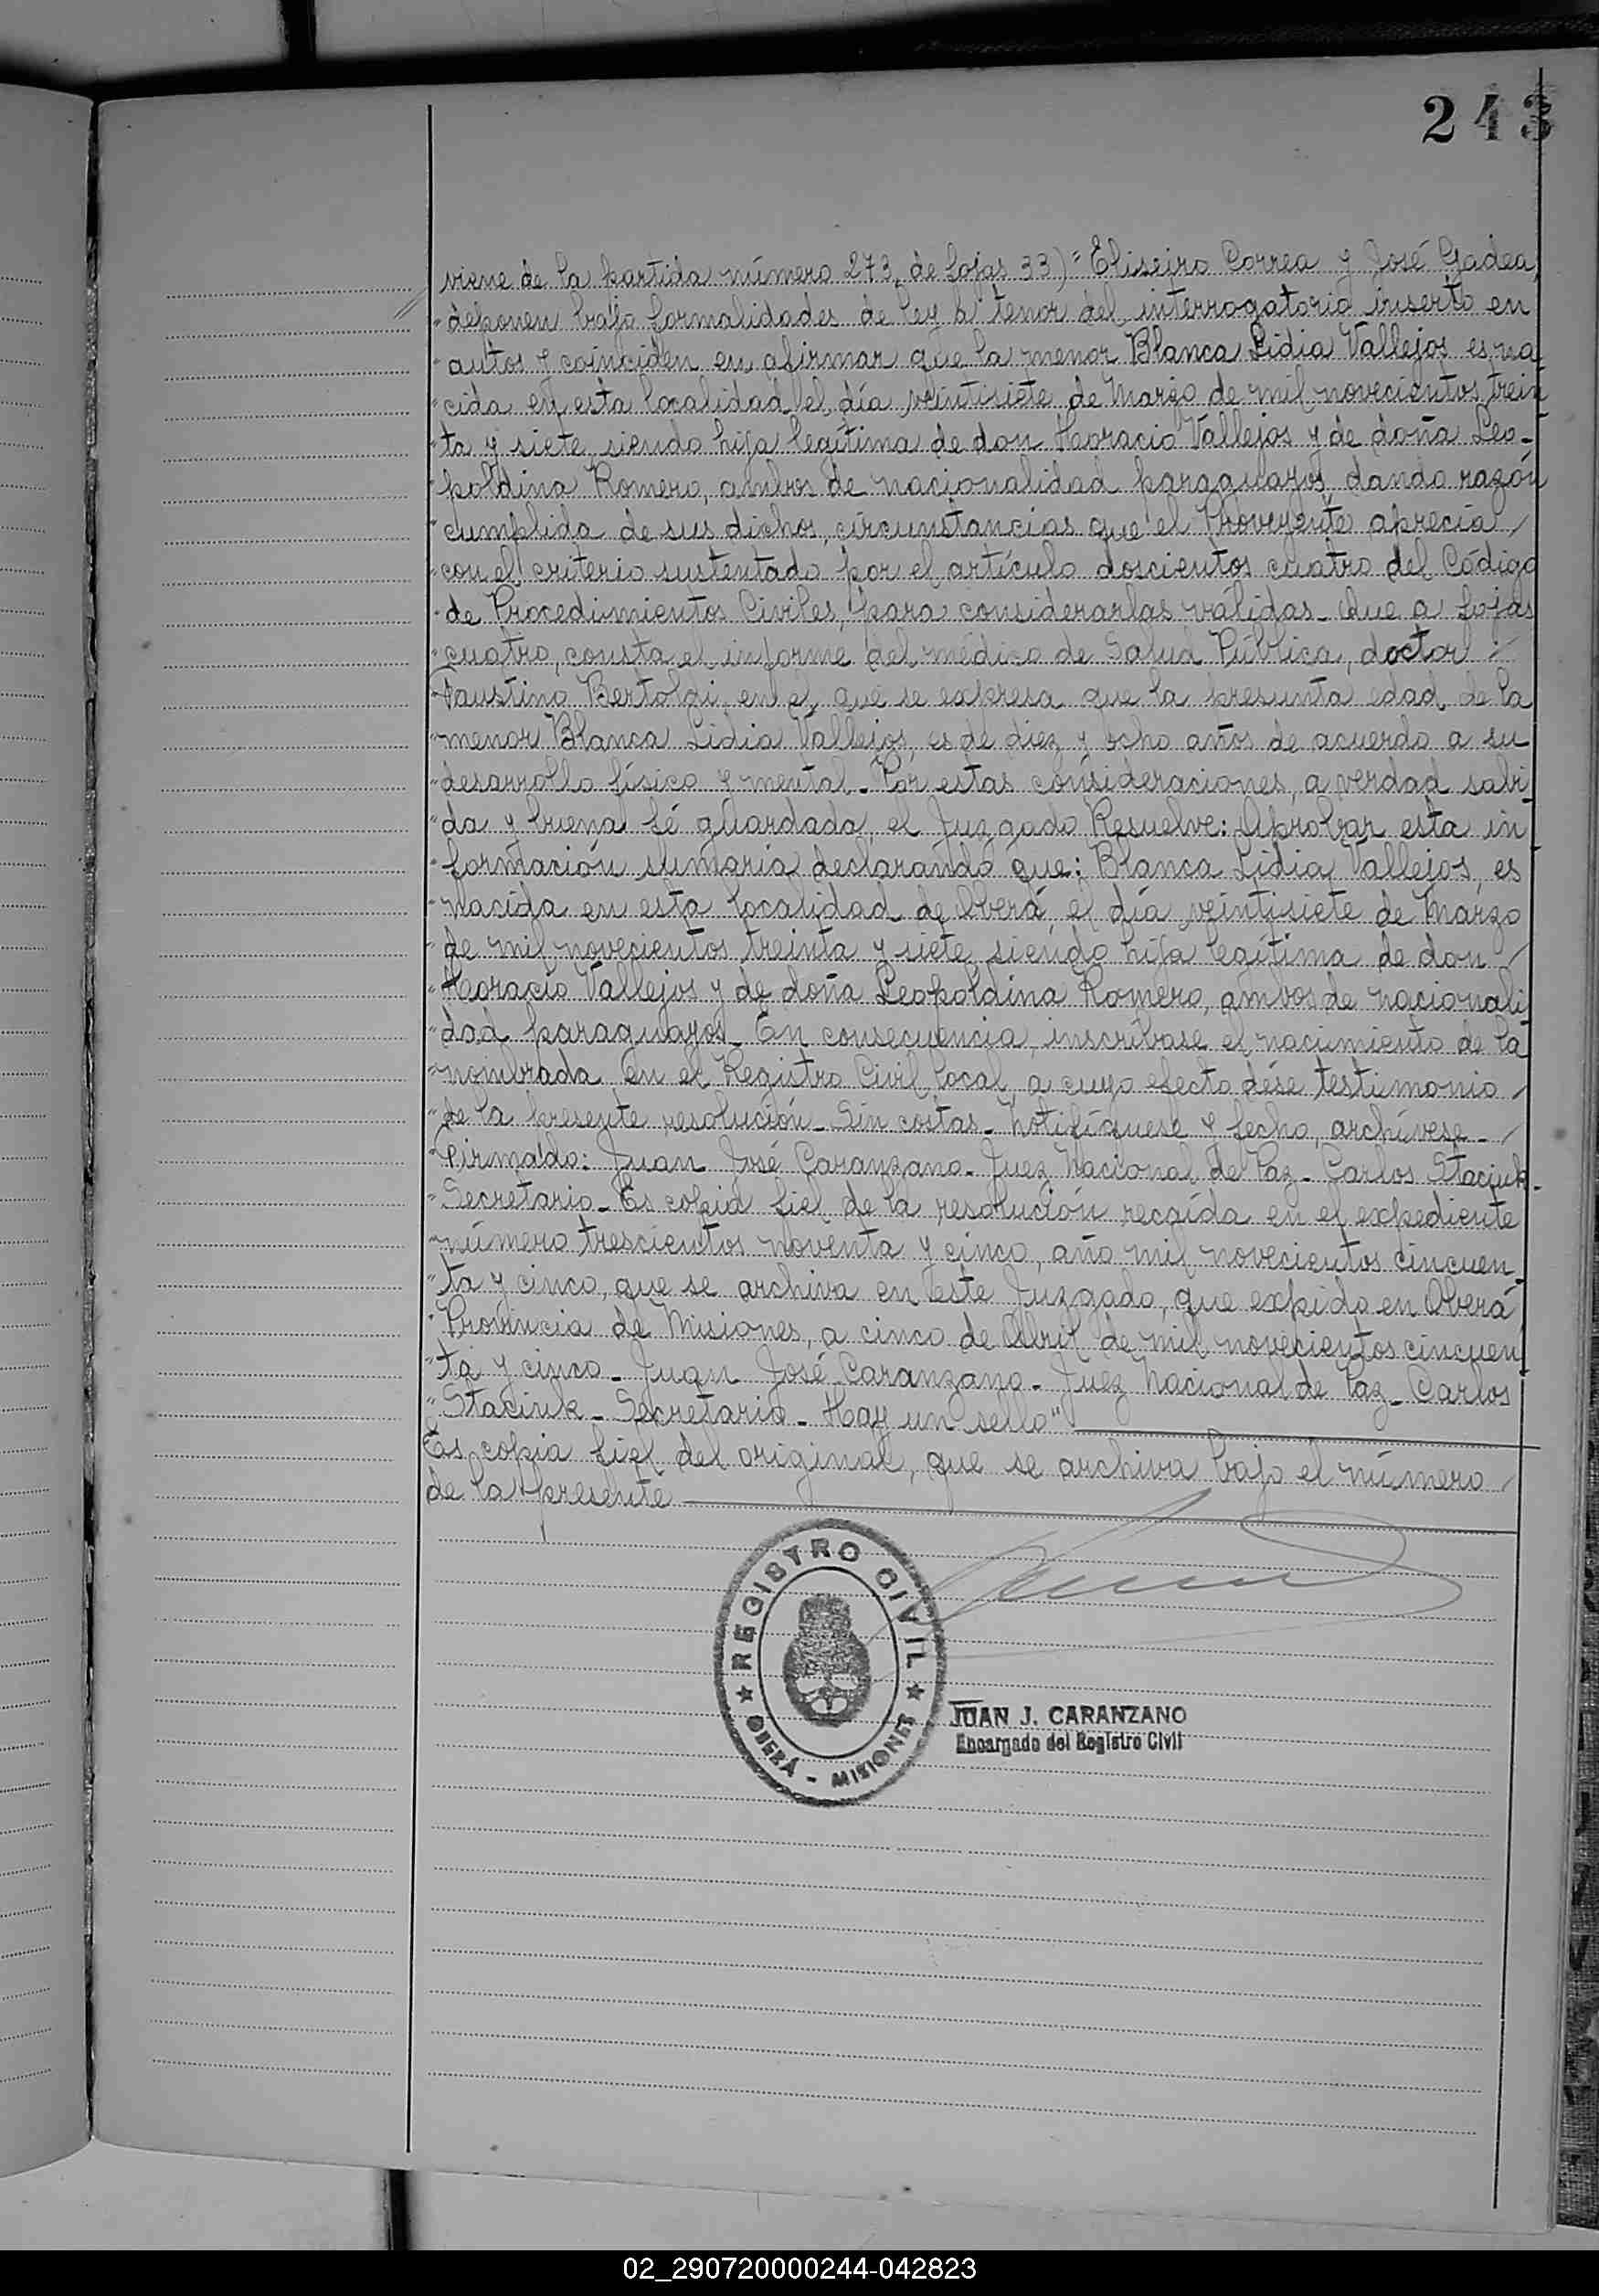 243
viene de la partida número 273, de fojas 33) "Eliseiro Correa y José Gadea,
"deponen bajo formalidades de ley a tenor del interrogatorio inserto en
"autos y coinciden en afirmar que la menor Blanca Lidia Vallejos es na
"cida en esta localidad el día veintisiete de Marzo de mil novecientos trein
"ta y siete, siendo hija legítima de don Horacio Vallejos y de doña Leo-
"poldina Romero, ambos de nacionalidad paraguayos, dando razón
"cumplida de sus dichos, circunstancias que el Proveyente aprecia
"con el criterio sustentado por el artículo doscientos cuatro del Código
"de Procedimientos Civiles, para considerarlas válidas_ Que a fojas
"cuatro, consta el informe del médico de Salud Pública, doctor
"Faustino Bertoldi, en el que se expresa que la presunta edad de la
"menor Blanca Lidia Vallejos, es de diez y ocho años de acuerdo a su
"desarrollo físico y mental_ Por estas consideraciones, a verdad sabi
"da y buena fé guardada, el Juzgado Resuelve: Aprobar esta in
"formación sumaria declarando que: Blanca Lidia Vallejos, es
"nacida en esta localidad de Oberá el día veintisiete de Marzo
"de mil novecientos treinta y siete, siendo hija legítima de don
"Horacio Vallejos y de doña Leopoldina Romero, ambos de nacionali
"dad paraguayos_ En consecuencia, inscríbase el nacimiento de la
"nombrada en el Registro Civil local, a cuyo efecto dése testimonio
"de la presente resolución_ Sin costas_ Notifíquese y fecho, archívese_
"Firmado: Juan José Caranzano_ Juez Nacional de Paz_ Carlos Staciuk_
"Secretario_ Es copia fiel de la resolución recaída en el expediente
"número trescientos noventa y cinco, año mil novecientos cincuen
"ta y cinco, que se archiva en este Juzgado, que expido en Oberá
"Provincia de Misiones, a cinco de Abril de mil novecientos cincuen
"ta y cinco_ Juan José Caranzano_ Juez Nacional de Paz_ Carlos
"Staciuk_ Secretario_ Hay un sello"
Es copia fiel del original, que se archiva bajo el número
de la presente
REGISTRO CIVIL
OBERÁ - MISIONES
JUAN J. CARANZANO
Encargado del Registro Civil
02_290720000244-042823